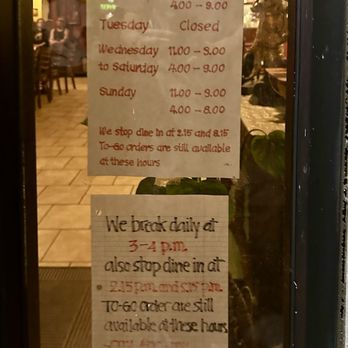 4.00 - 9.00
Tuesday Closed
Wednesday 11.00 - 9.00
to Saturday 4.00 - 9.00
Sunday 11.00 - 9.00
4.00 - 8.00
We stop dine in at 2.15 and 8.15
To-Go orders are still available
at these hours
We break daily at
3-4 p.m.
also stop dine in at
2.15 p.m. and 8.15 p.m.
TO-GO order are still
available at these hours